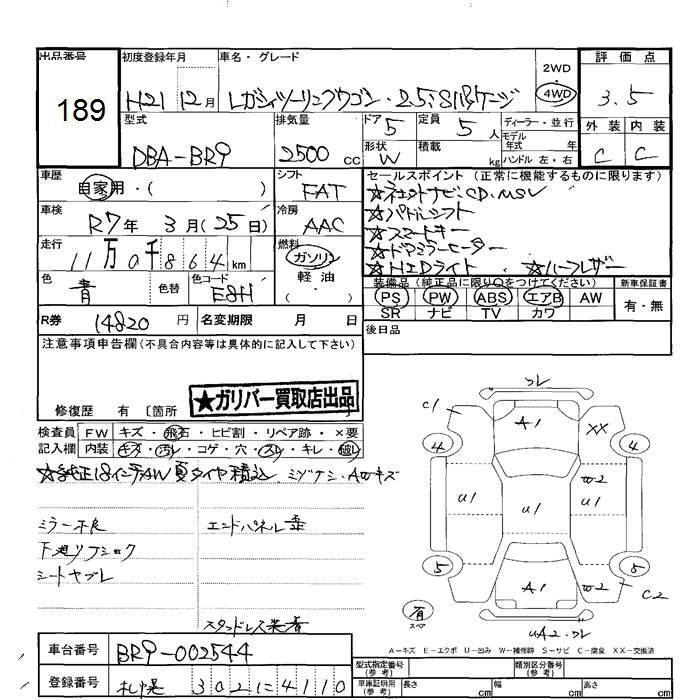 出品番号 初度登録年月 車名・グレード 評価点
189
H21 12月
レガシィツーリングワゴン・2.5i SIパッケージ
2WD
4WD
3.5
型式 排気量 ドア 定員 ディーラー・並行
5 5人
モデル年式 年
外装 内装
DBA-BR9 2500 cc
形状 W 積載 kg ハンドル 左・右
C C
車歴 自家用・( )
シフト FAT
セールスポイント (正常に機能するものに限ります)
☆ネェットナビCD.MSV
☆パドルシフト
車検 R7年 3月(25日)
冷房 AAC
☆スマートキー
☆ドアミラーヒーター
走行 11万0千864km
燃料 ガソリン
軽油
( )
☆HIDライト ・☆ハーフレザー
色 青 色替 色コード E8H
装備品 (純正品に限り○をつけてください) 新車保証書
PS PW ABS エアB AW
SR ナビ TV カワ
有・無
R券 14820円 名変期限 月 日
後日品
注意事項申告欄(不具合内容等は具体的に記入して下さい)
★ガリバー買取店出品
修復歴 有 〔箇所 〕
検査員 FW キズ・飛石・ヒビ割・リペア跡・×要
記入欄 内装 キズ・汚レ・コゲ・穴・スレ・キレ・破レ
☆純正18インチAW 夏タイヤ積込 ミゾナシ・AWキズ
ミラー不良 エンドパネル歪
下廻リフショク
シートヤブレ
スタッドレス装着
フレ
C1 A1 XX
4 4
U1 U1 U1 W2
5 5
A1 W2 C2
有
スペア
UA2.フレ
A=キズ E=エクボ U=凹み W=補修跡 S=サビ C=腐食 XX=交換済
車台番号 BR9-002544
型式指定番号(参考) 類別区分番号(参考)
登録番号 札幌 302に4110
車庫証明用(参考) 長さ cm 幅 cm 高さ cm